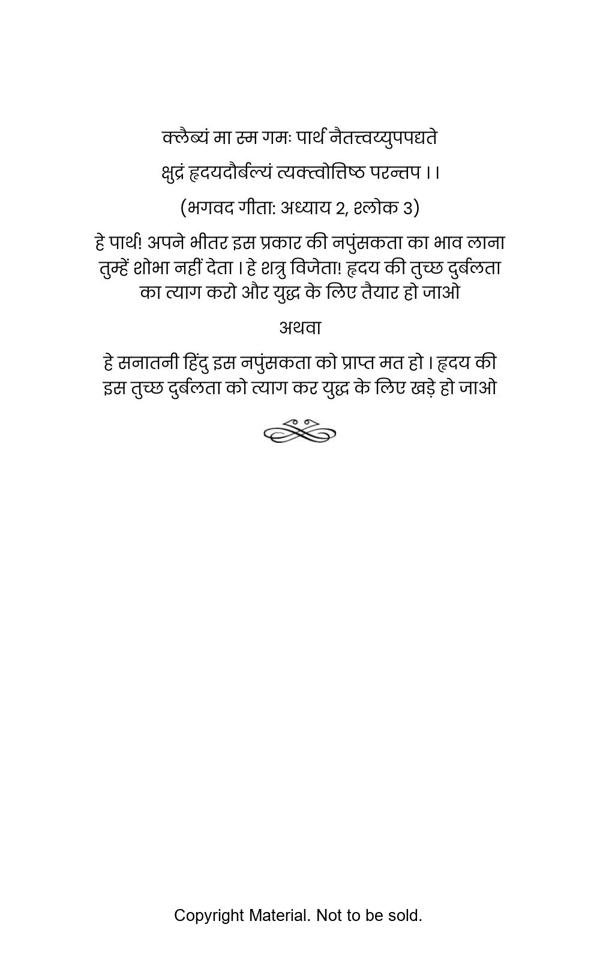 क्लैब्यं मा स्म गमः पार्थ नैतत्त्वय्युपपद्यते
क्षुद्रं हृदयदौर्बल्यं त्यक्त्वोत्तिष्ठ परन्तप ।।
(भगवद गीता: अध्याय 2, श्लोक 3)
हे पार्थ! अपने भीतर इस प्रकार की नपुंसकता का भाव लाना
तुम्हें शोभा नहीं देता । हे शत्रु विजेता! हृदय की तुच्छ दुर्बलता
का त्याग करो और युद्ध के लिए तैयार हो जाओ
अथवा
हे सनातनी हिंदु इस नपुंसकता को प्राप्त मत हो । हृदय की
इस तुच्छ दुर्बलता को त्याग कर युद्ध के लिए खड़े हो जाओ
Copyright Material. Not to be sold.